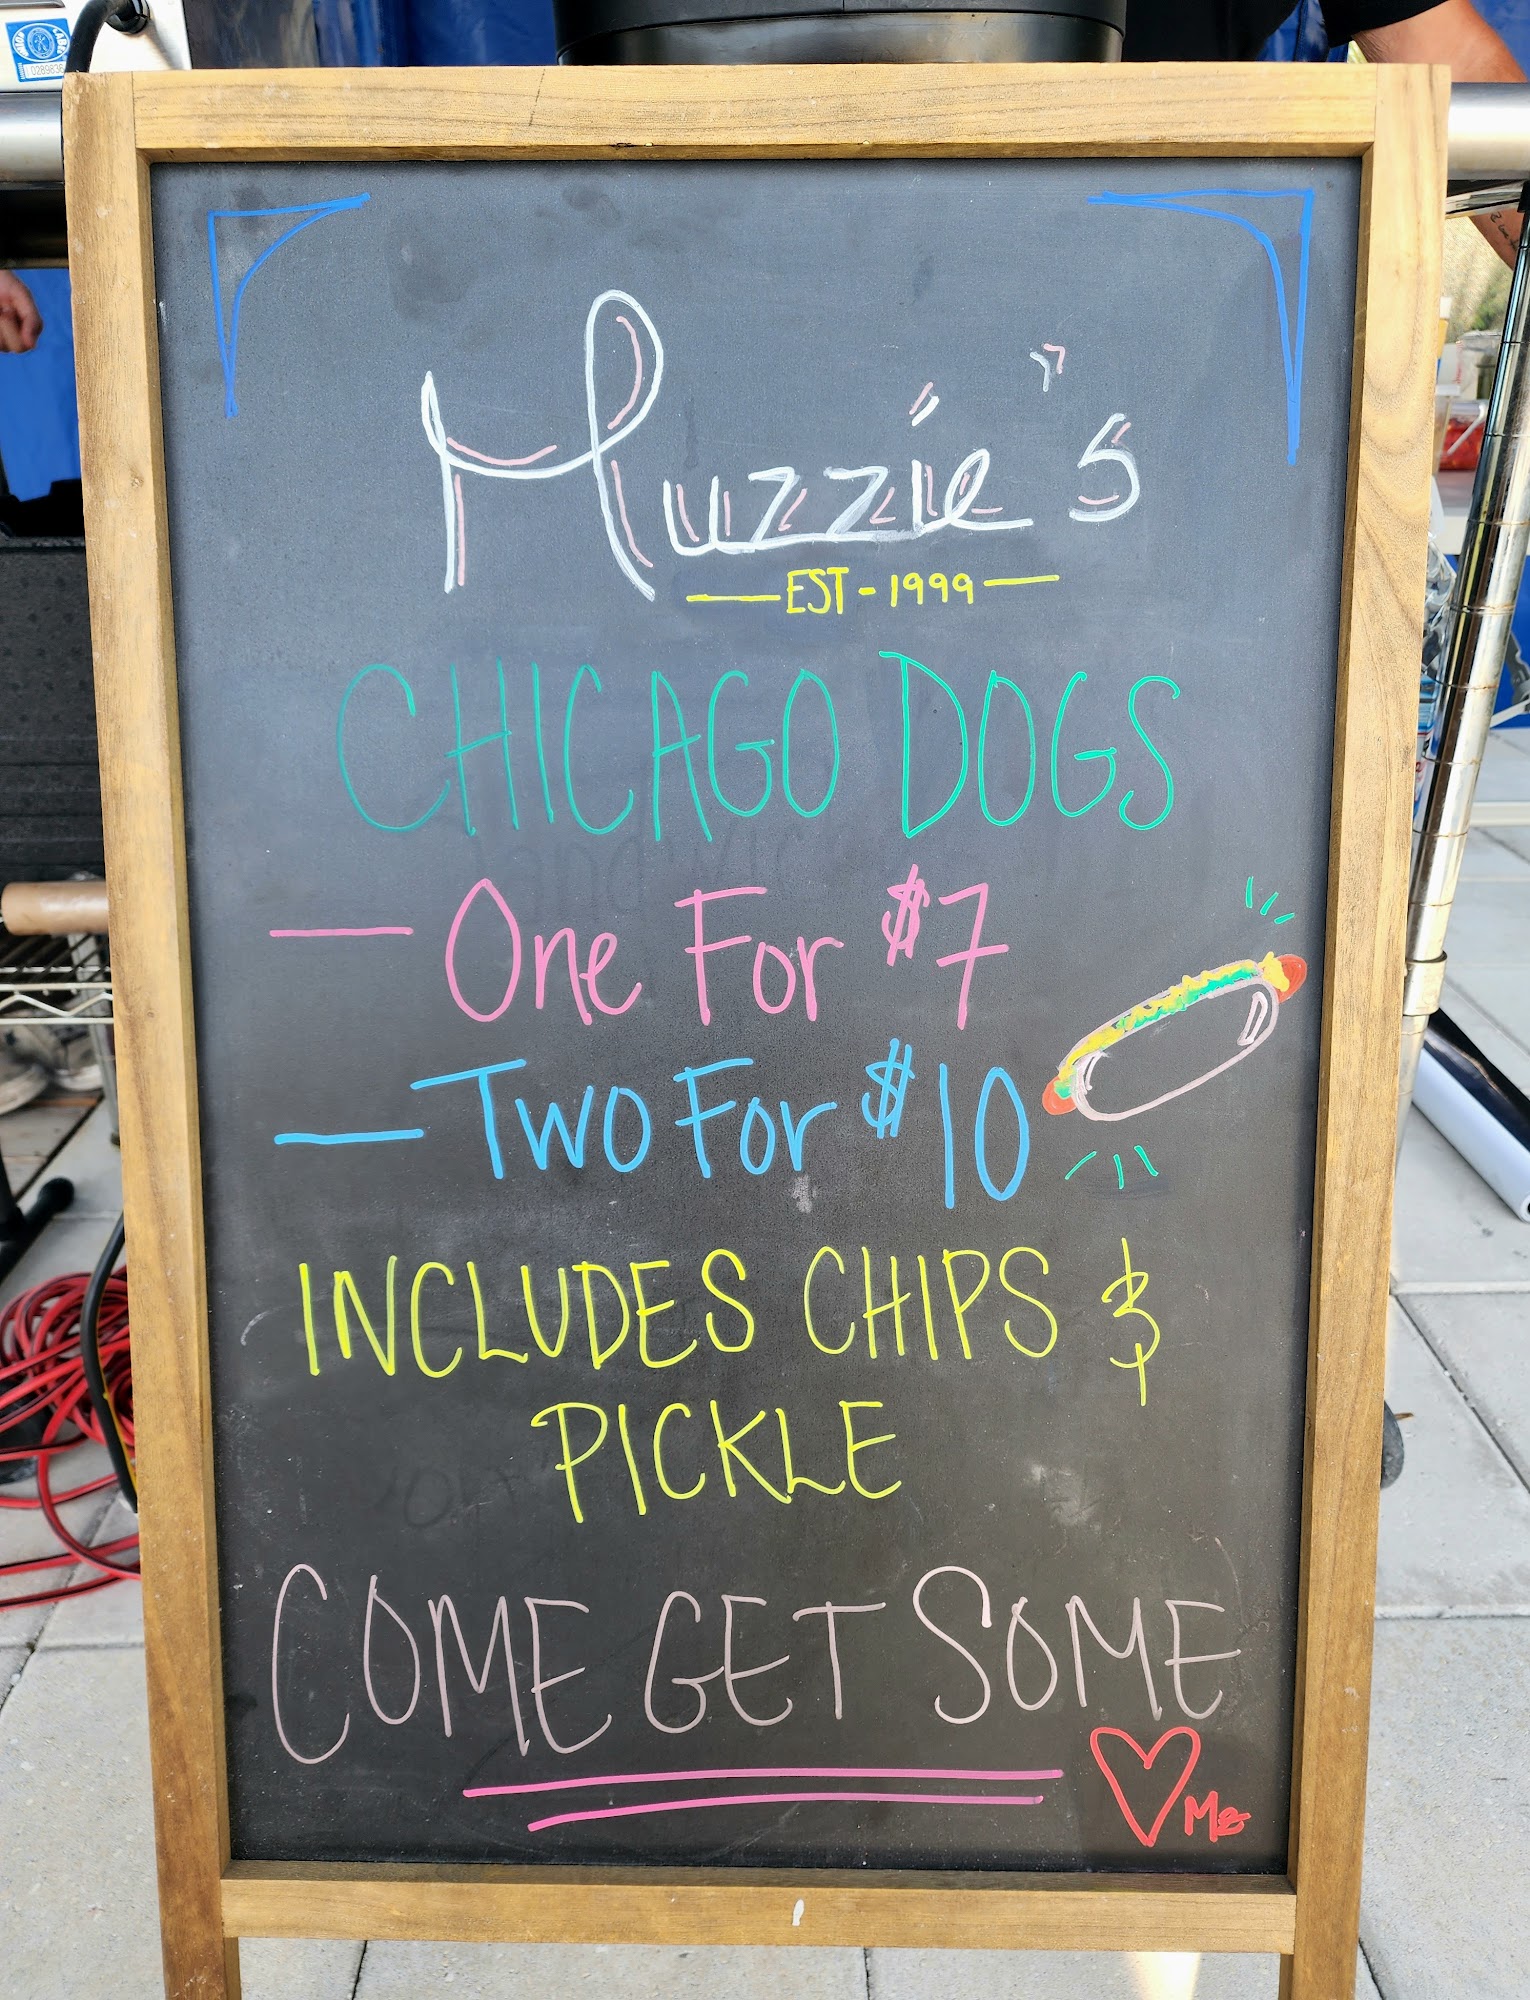 Muzzie's
EST-1999
CHICAGO DOGS
— One For $7
— Two For $10
INCLUDES CHIPS &
PICKLE
COME GET SOME